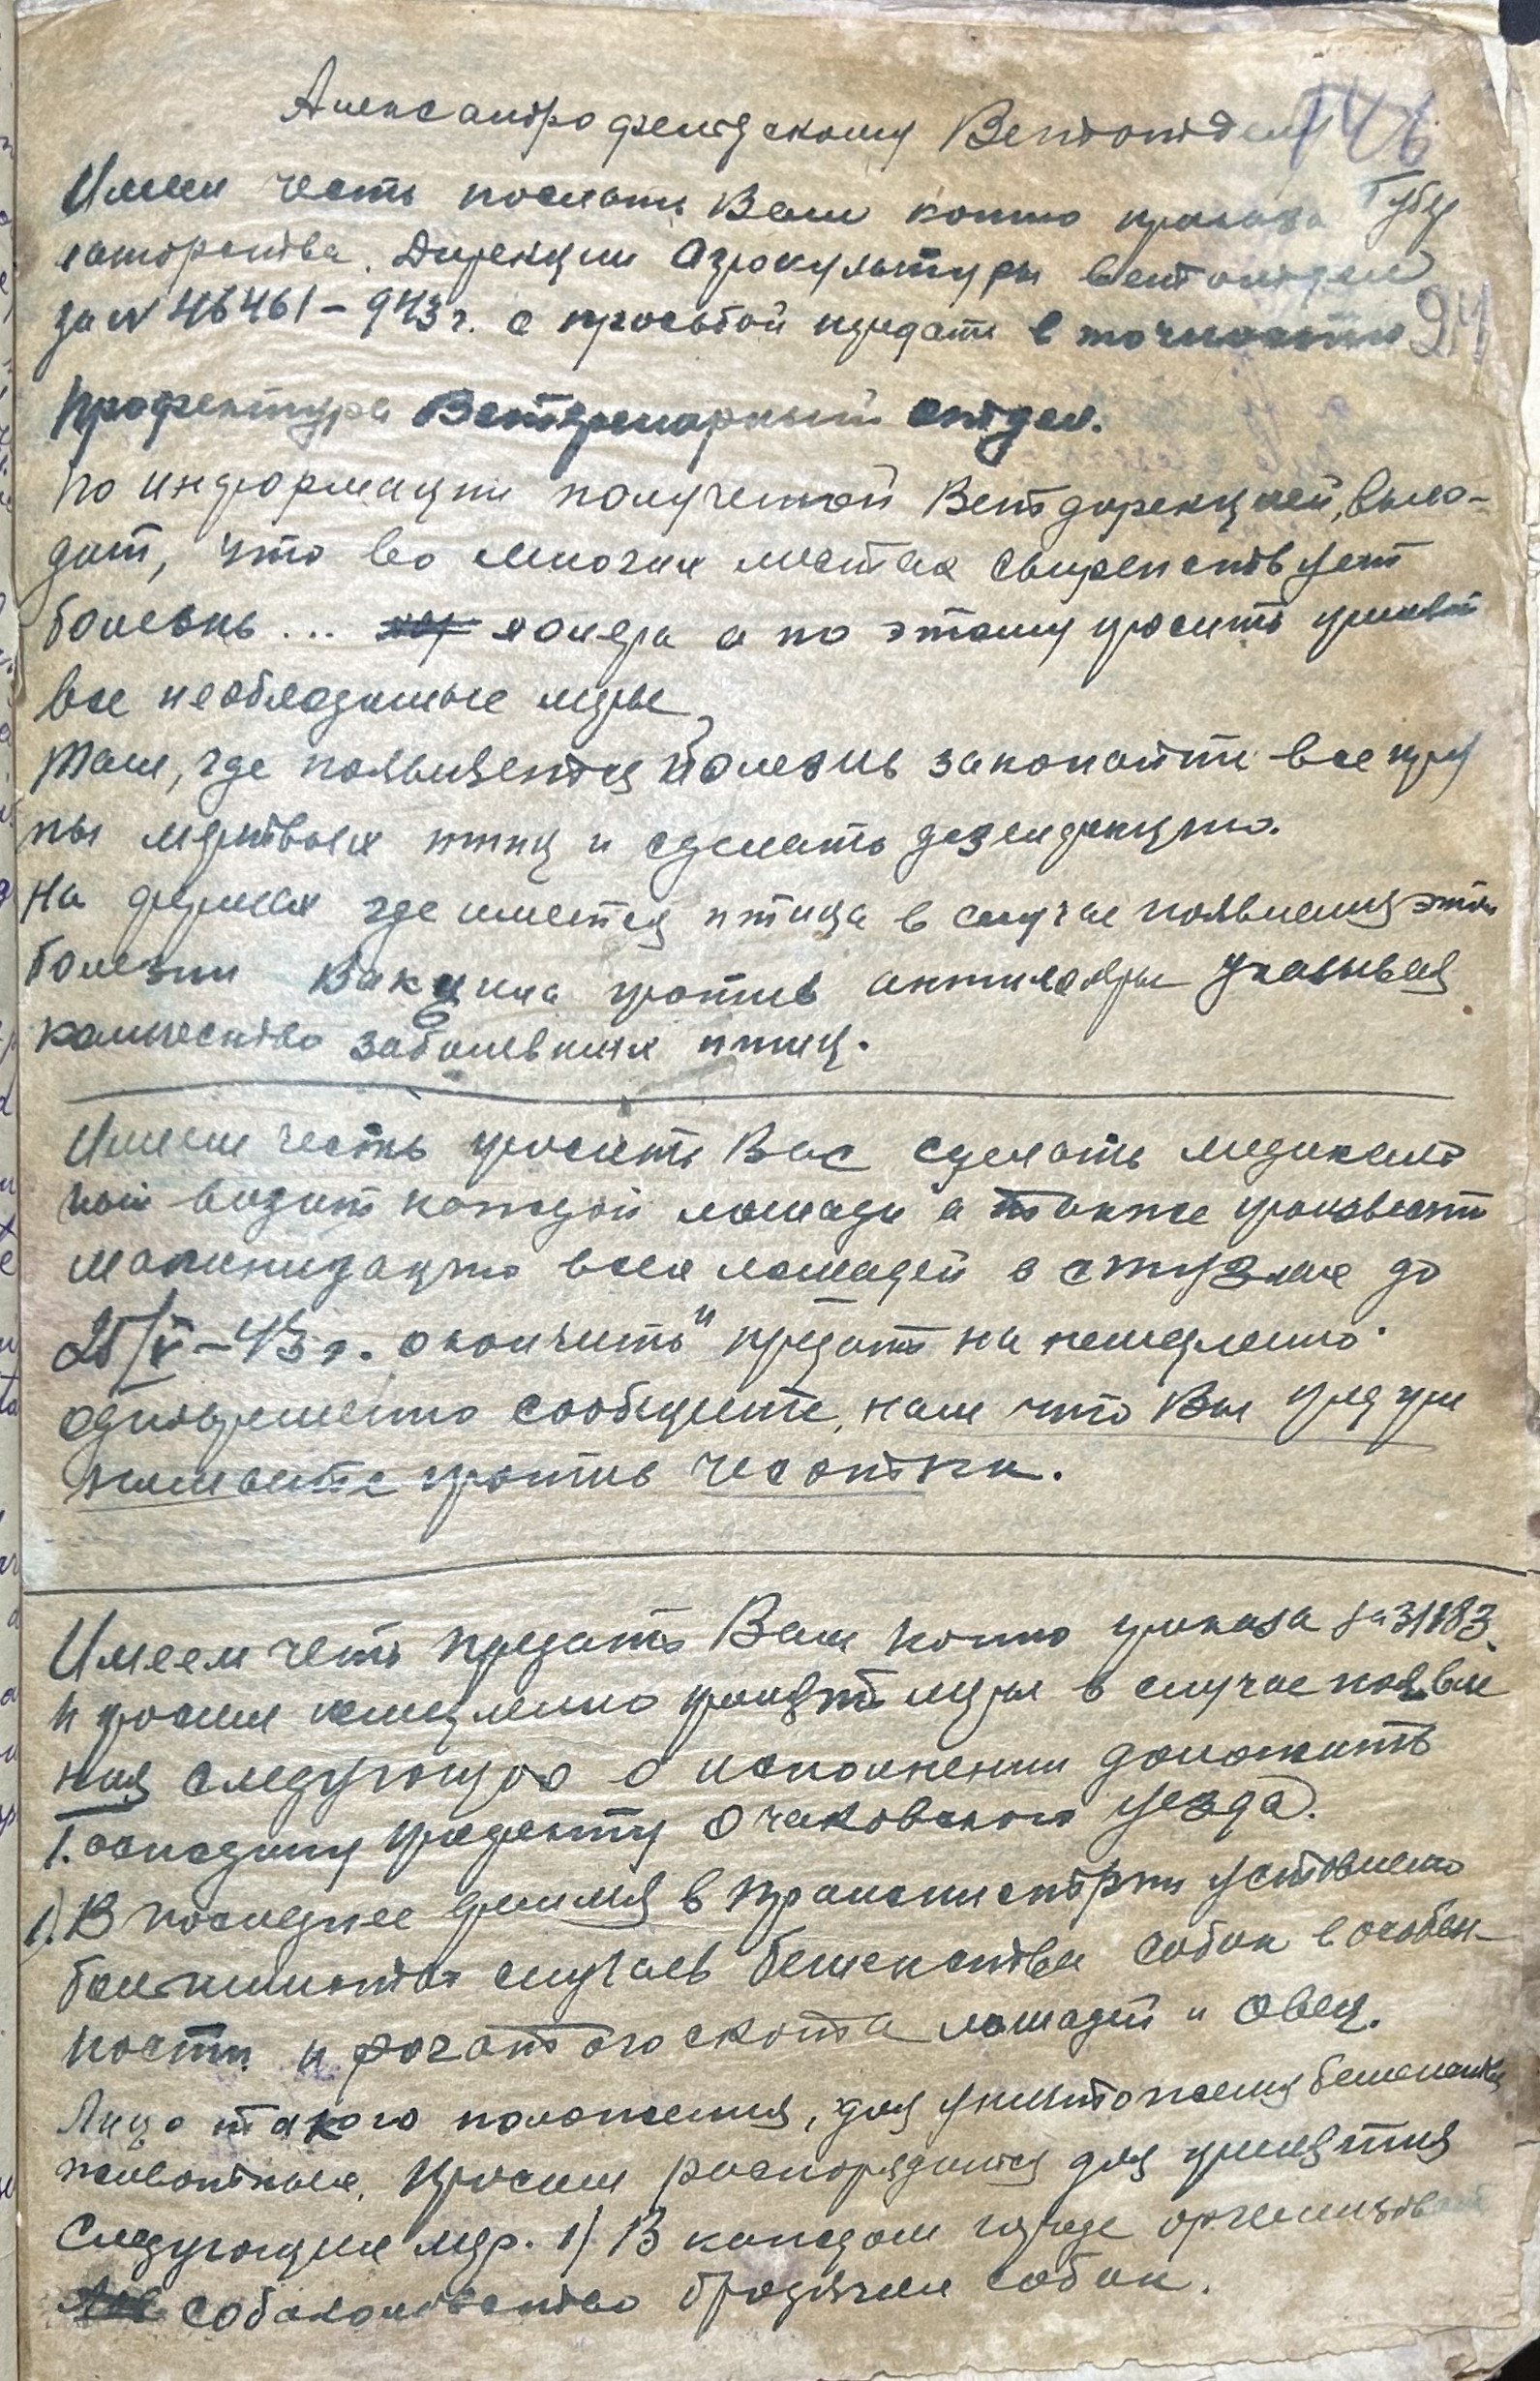 Александрофельдскому Ветотделу
146
Имеем честь послать Вам копию приказа Губер
наторства. Дирекции Агрокультуры ветотдел
за № 46461 – 943 г. с просьбой придать в точности
94
Префектура Ветеринарный отдел.
По информации полученой Ветдирекцией, выхо-
дит, что во многих местах свирепствует
болезнь... холера а по этому просить принять
все необходимые меры,
там, где появляется болезнь закопайти все тру
пы мертвых птиц и сделать дезенфекцию.
На фермах где имеется птица в случае появления этой
болезни Вакцина против указывая
количество заболевших птиц.
Имеем честь просить Вас сделать медикаль
ный визит каждой лошади а также произвест
малинизацию всех лошадей в до
25/V – 43 г. окончить и предать на немедленно
одновременно сообщите, нам что Вы предпри
нимаете против чесотки.
Имеем честь предать Вам копию приказа за 31183.
и просим немедленно принять меры в случае появле
ния следующего о исполнении доложить
Господину Префекту Очаковского уезда.
1). В последнее время в Транснистрии установлено
большинство случаев бешенства собак в особен-
ности и рогатого скота лошадей и овец.
Лицо такого положения, для уничтожения бешенства
животных. Просим распорядится для принятия
Следующих мер. 1) В каждом городе организоват
собаколовство бродячих собак.